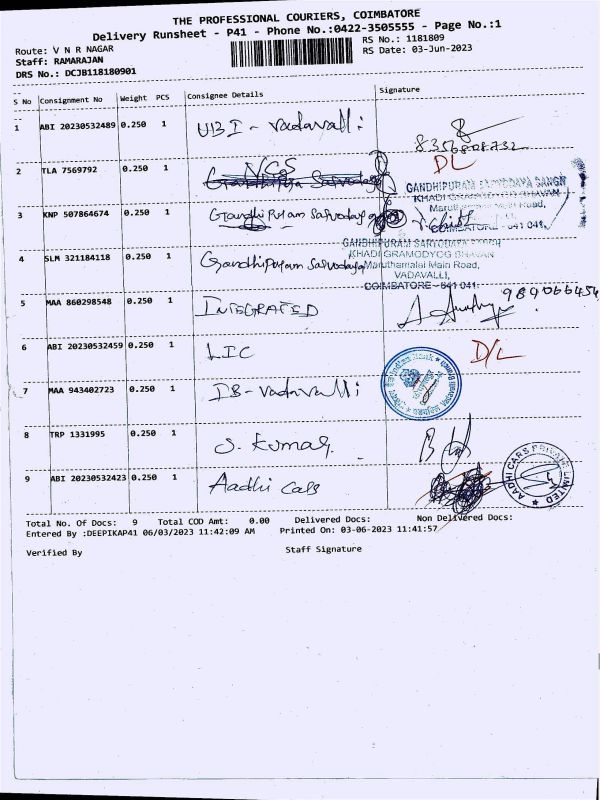 THE PROFESSIONAL COURIERS, COIMBATORE
Delivery Runsheet - P41 - Phone No.:0422-3505555 - Page No.:1
Route: V N R NAGAR
RS No.: 1181809
Staff: RAMARAJAN
RS Date: 03-Jun-2023
DRS No.: DCJB118180901
S No Consignment No Weight PCS Consignee Details Signature
1 ABI 20230532489 0.250 1 UBI - Vadavalli
8356808732
2 TLA 7569792 0.250 1 NCGS DL
Gandhipuram Sarvodaya
GANDHIPURAM SARVODAYA SANGH
KHADI GRAMODYOG BHAVAN
Maruthamalai Main Road,
COIMBATORE - 641 041.
3 KNP 507864674 0.250 1 Gandhipuram Sarvodaya
4 SLM 321184118 0.250 1 Gandhipuram Sarvodaya
GANDHIPURAM SARVODAYA SANGH
KHADI GRAMODYOG BHAVAN
Maruthamalai Main Road,
VADAVALLI,
COIMBATORE - 641 041.
5 MAA 860298548 0.250 1 INTEGRATED
6 ABI 20230532459 0.250 1 LIC D/L
7 MAA 943402723 0.250 1 IB - Vadavalli
Indian Bank
8 TRP 1331995 0.250 1 S. Kumar
9 ABI 20230532423 0.250 1 Aadhi Cars
AADHI CARS PRIVATE LIMITED
Total No. Of Docs: 9 Total COD Amt: 0.00 Delivered Docs: Non Delivered Docs:
Entered By :DEEPIKAP41 06/03/2023 11:42:09 AM Printed On: 03-06-2023 11:41:57
Verified By Staff Signature